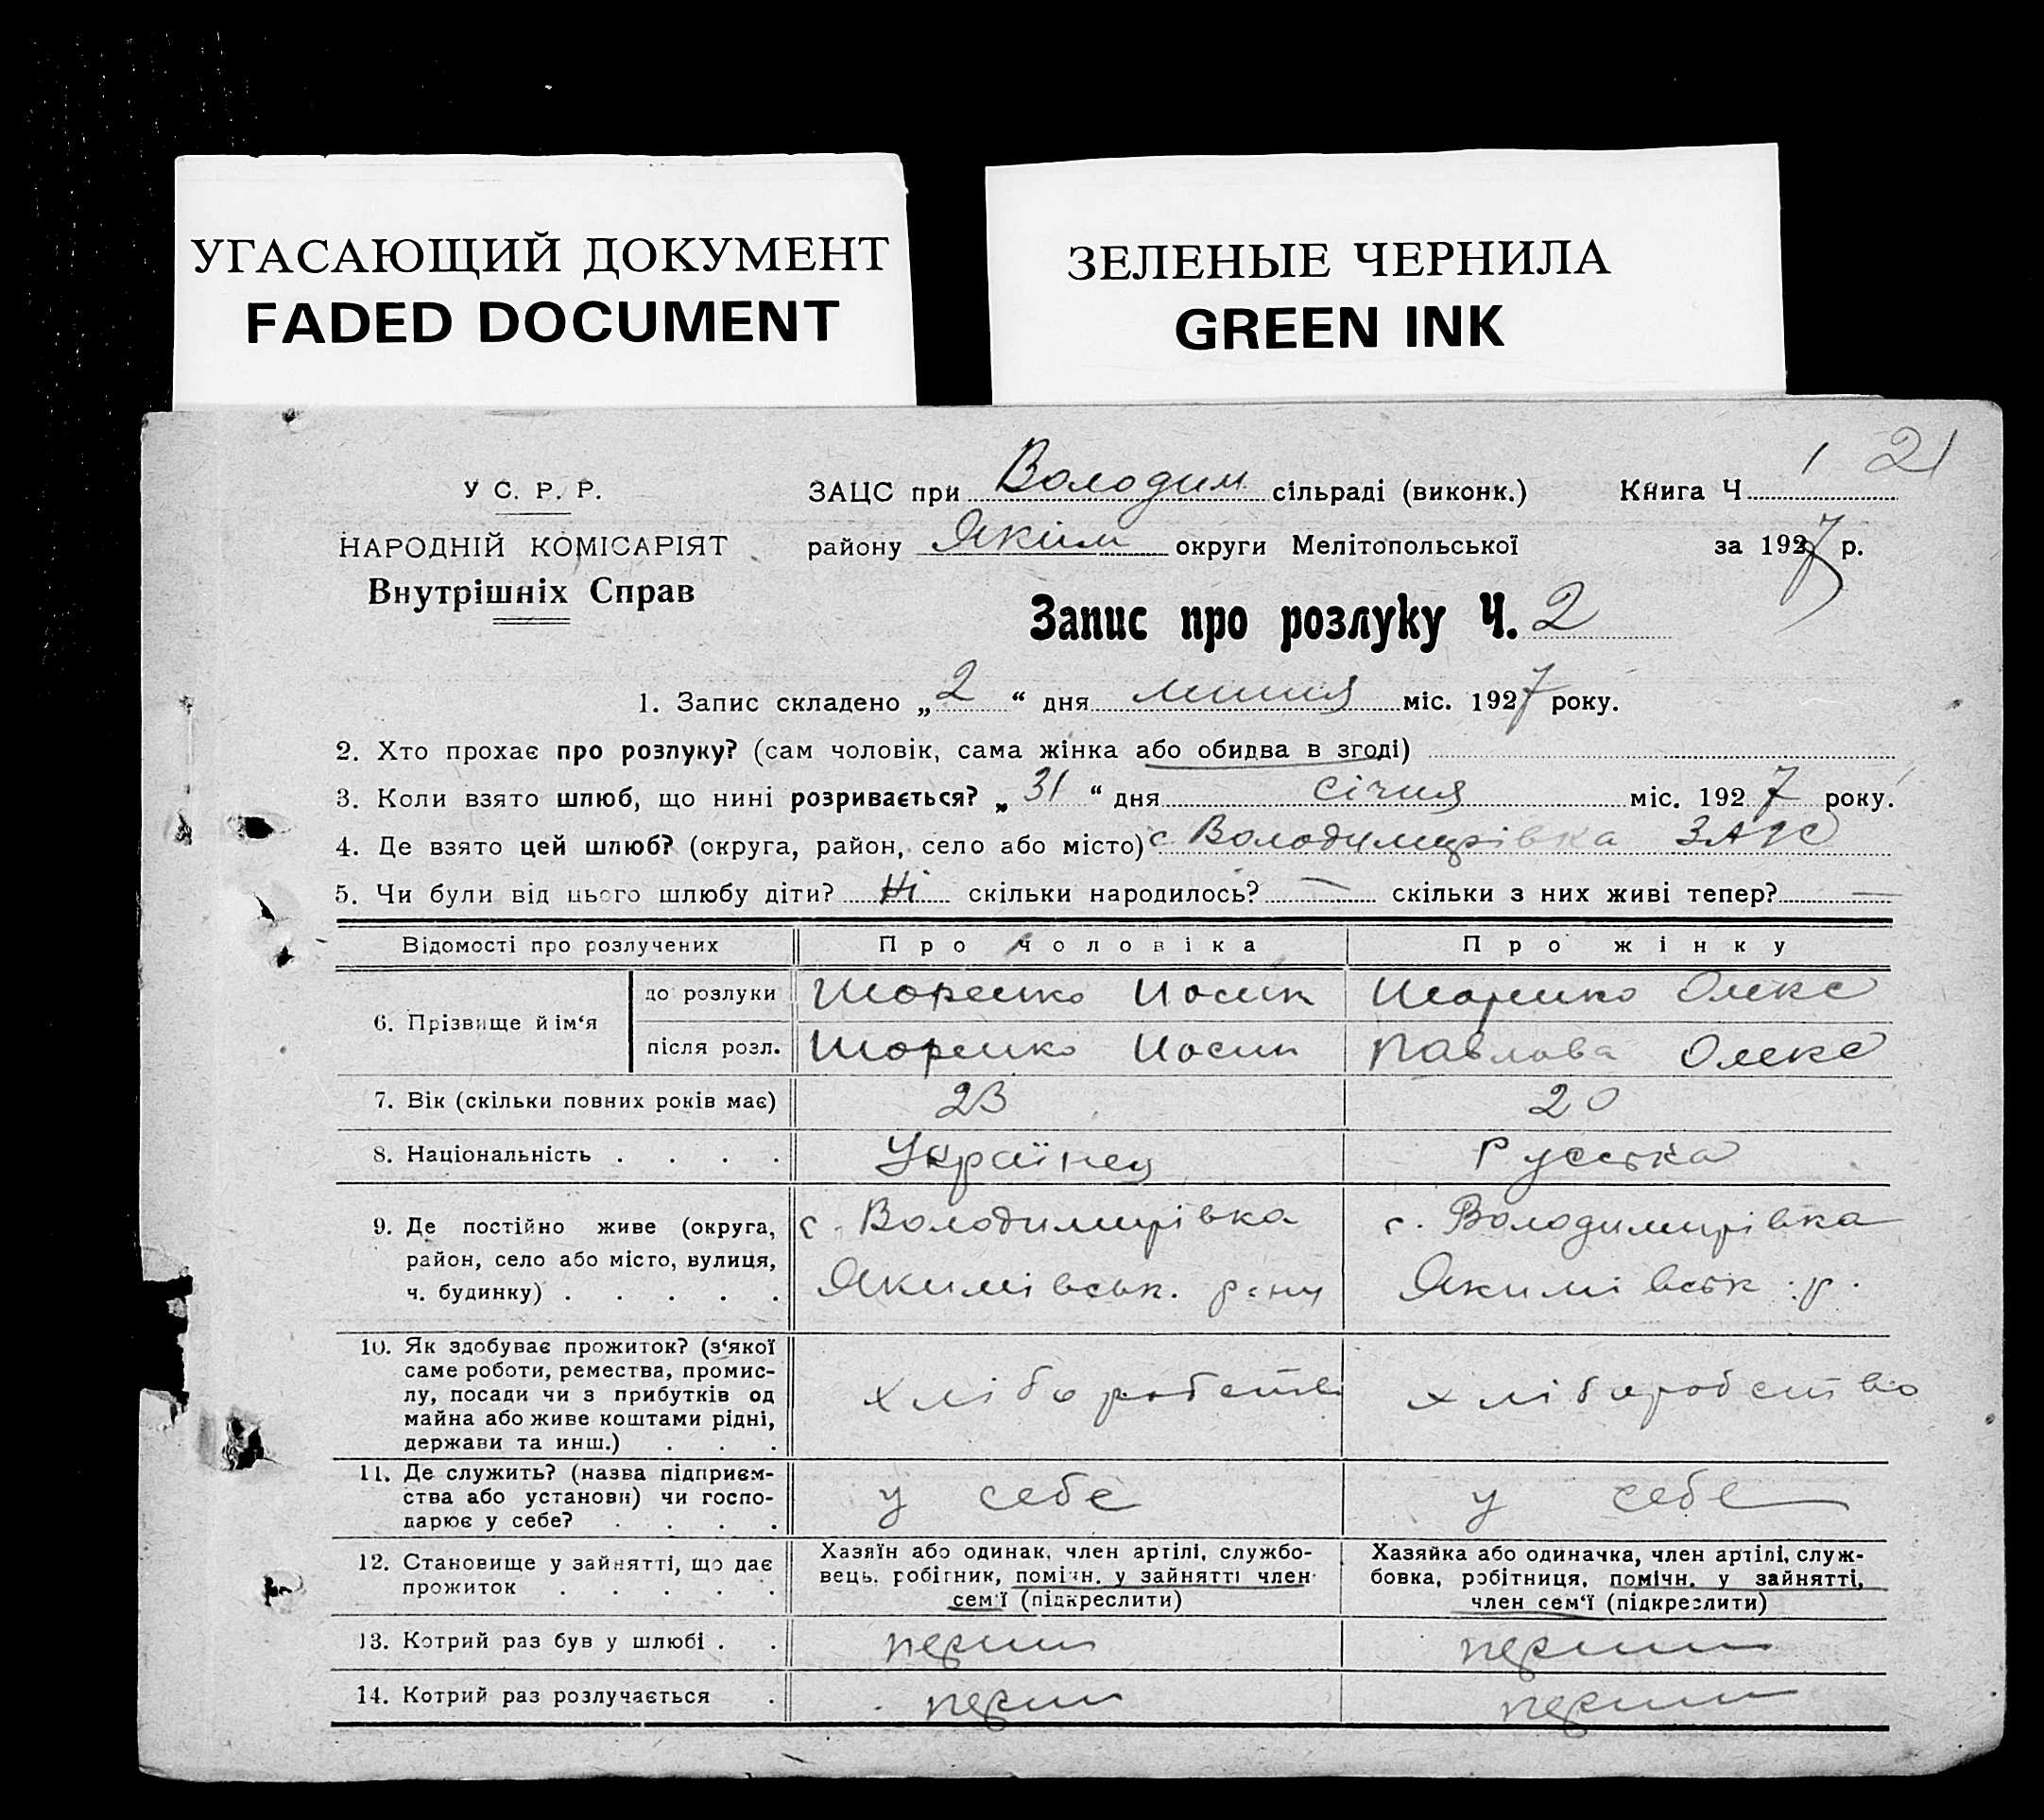 УГАСАЮЩИЙ ДОКУМЕНТ
FADED DOCUMENT
ЗЕЛЕНЫЕ ЧЕРНИЛА
GREEN INK
1 21
У С. Р. Р.
НАРОДНІЙ КОМІСАРІЯТ
Внутрішніх Справ
ЗАЦС при Володим сільраді (виконк.) Книга Ч
району Якім округи Мелітопольської за 1927 р.
Запис про розлуку Ч. 2
1. Запис складено „2“ дня липня міс. 1927 року.
2. Хто прохає про розлуку? (сам чоловік, сама жінка або обидва в згоді)
3. Коли взято шлюб, що нині розривається? „31“ дня січня міс. 1927 року.
4. Де взято цей шлюб? (округа, район, село або місто) с Володимирівка ЗАГС
5. Чи були від цього шлюбу діти? Ні скільки народилось? — скільки з них живі тепер? —
Відомості про розлучених Про чоловіка Про жінку
6. Прізвище й ім‘я
до розлуки Йосип Олекс
після розл. Йосип Павлова Олекс
7. Вік (скільки повних років має) 23 20
8. Національність . . . . Українец Руська
9. Де постійно живе (округа, с. Володимирівка с. Володимирівка
район, село або місто, вулиця,
ч. будинку) . . . . . Якимівськ. р-ну Якимівськ. р.
10. Як здобуває прожиток? (з‘якої
саме роботи, ремества, промис-
лу, посади чи з прибутків од хліборобств хліборобство
майна або живе коштами рідні,
держави та инш.) . . .
11. Де служить? (назва підприєм-
ства або установи) чи госпо- у себе у себе
дарює у себе? . . . .
12. Становище у зайнятті, що дає
прожиток . . . . .
Хазяїн або одинак, член артілі, службо-
вець, робітник, помічн. у зайнятті член
сем‘ї (підкреслити)
Хазяйка або одиначка, член артілі, служ-
бовка, робітниця, помічн. у зайнятті,
член сем‘ї (підкреслити)
13. Котрий раз був у шлюбі . . перший перший
14. Котрий раз розлучається . перший перший